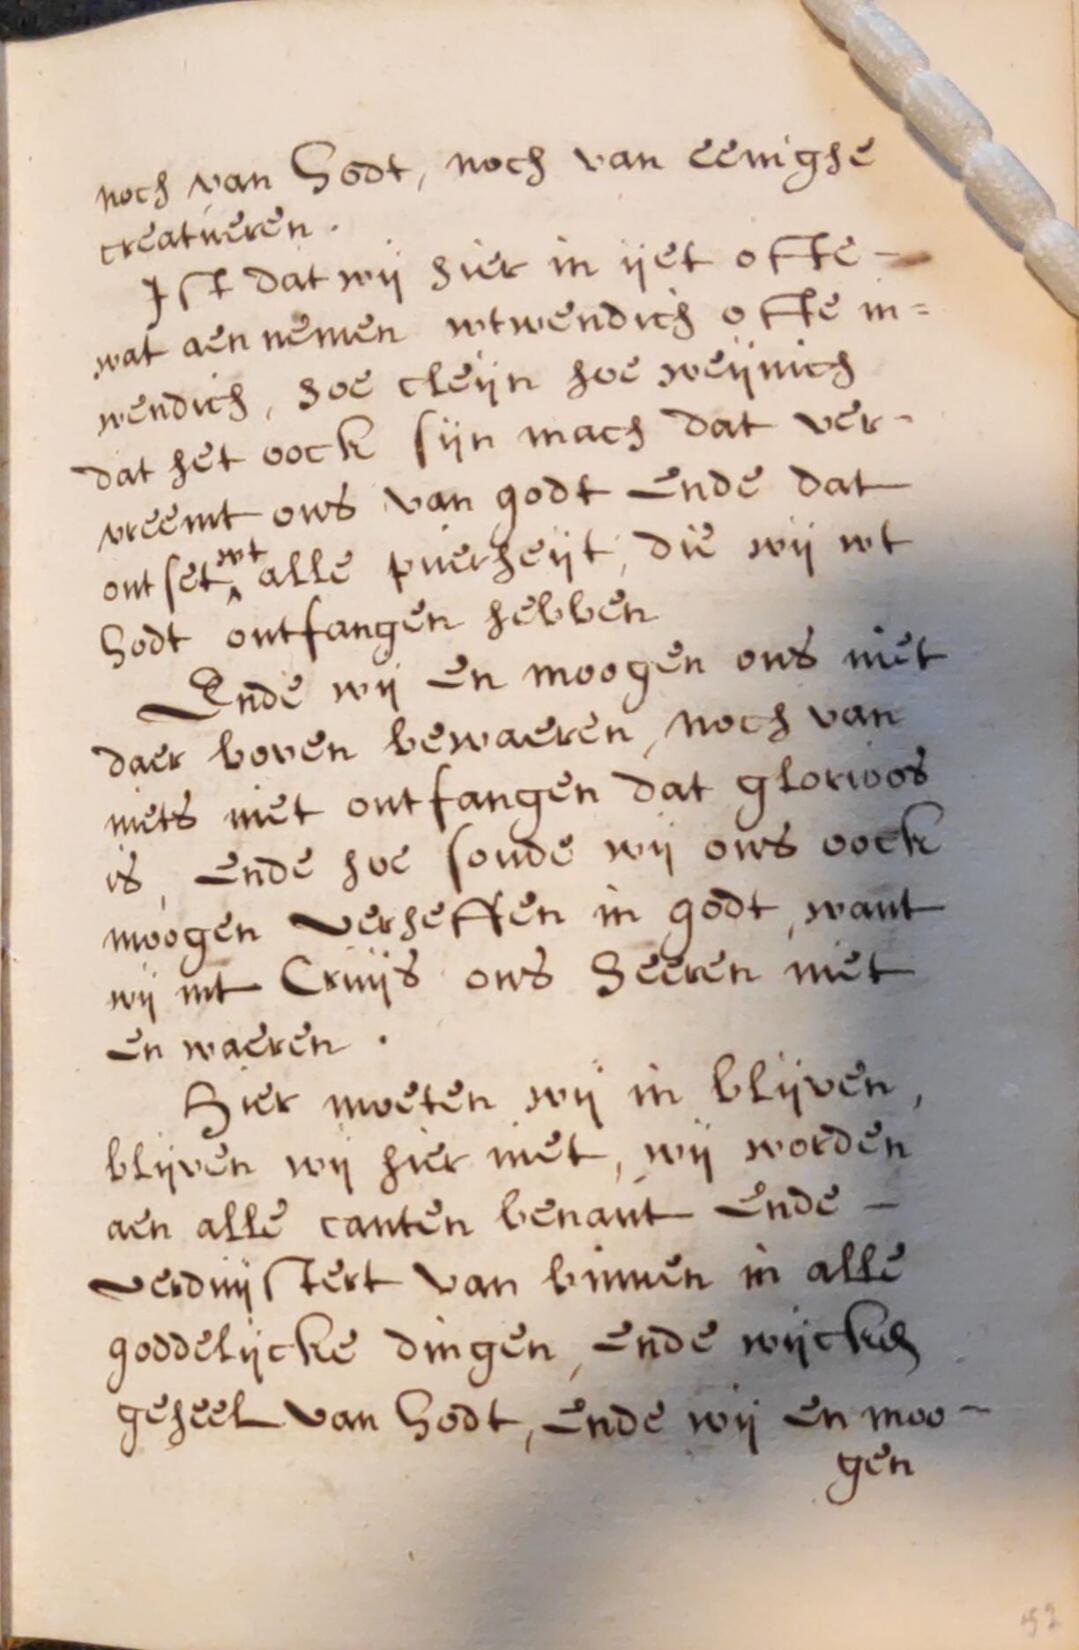 noch van Godt, noch van eenighe
creatueren.
Ist dat wij hier in ijet ofte –
wat aen nemen wtwendich ofte in=
wendich, hoe cleijn hoe weijnich
dat het oock sijn mach dat ver-
vreemt ons van godt ende dat
ontset wt alle puerheijt, die wij wt
Godt ontfangen hebben
Ende wij en moogen ons niet
daer boven bewaeren, noch van
niets niet ontfangen dat glorioos
is, ende hoe soude wij ons oock
moogen verheffen in godt, want
wij int Cruijs ons Heeren niet
en waeren.
Hier moeten wij in blijven,
blijven wij hier niet, wij worden
aen alle canten benaut ende –
verduijstert van binnen in alle
goddelijcke dingen, ende wijcken
geheel van Godt, ende wij en moo-
gen
52